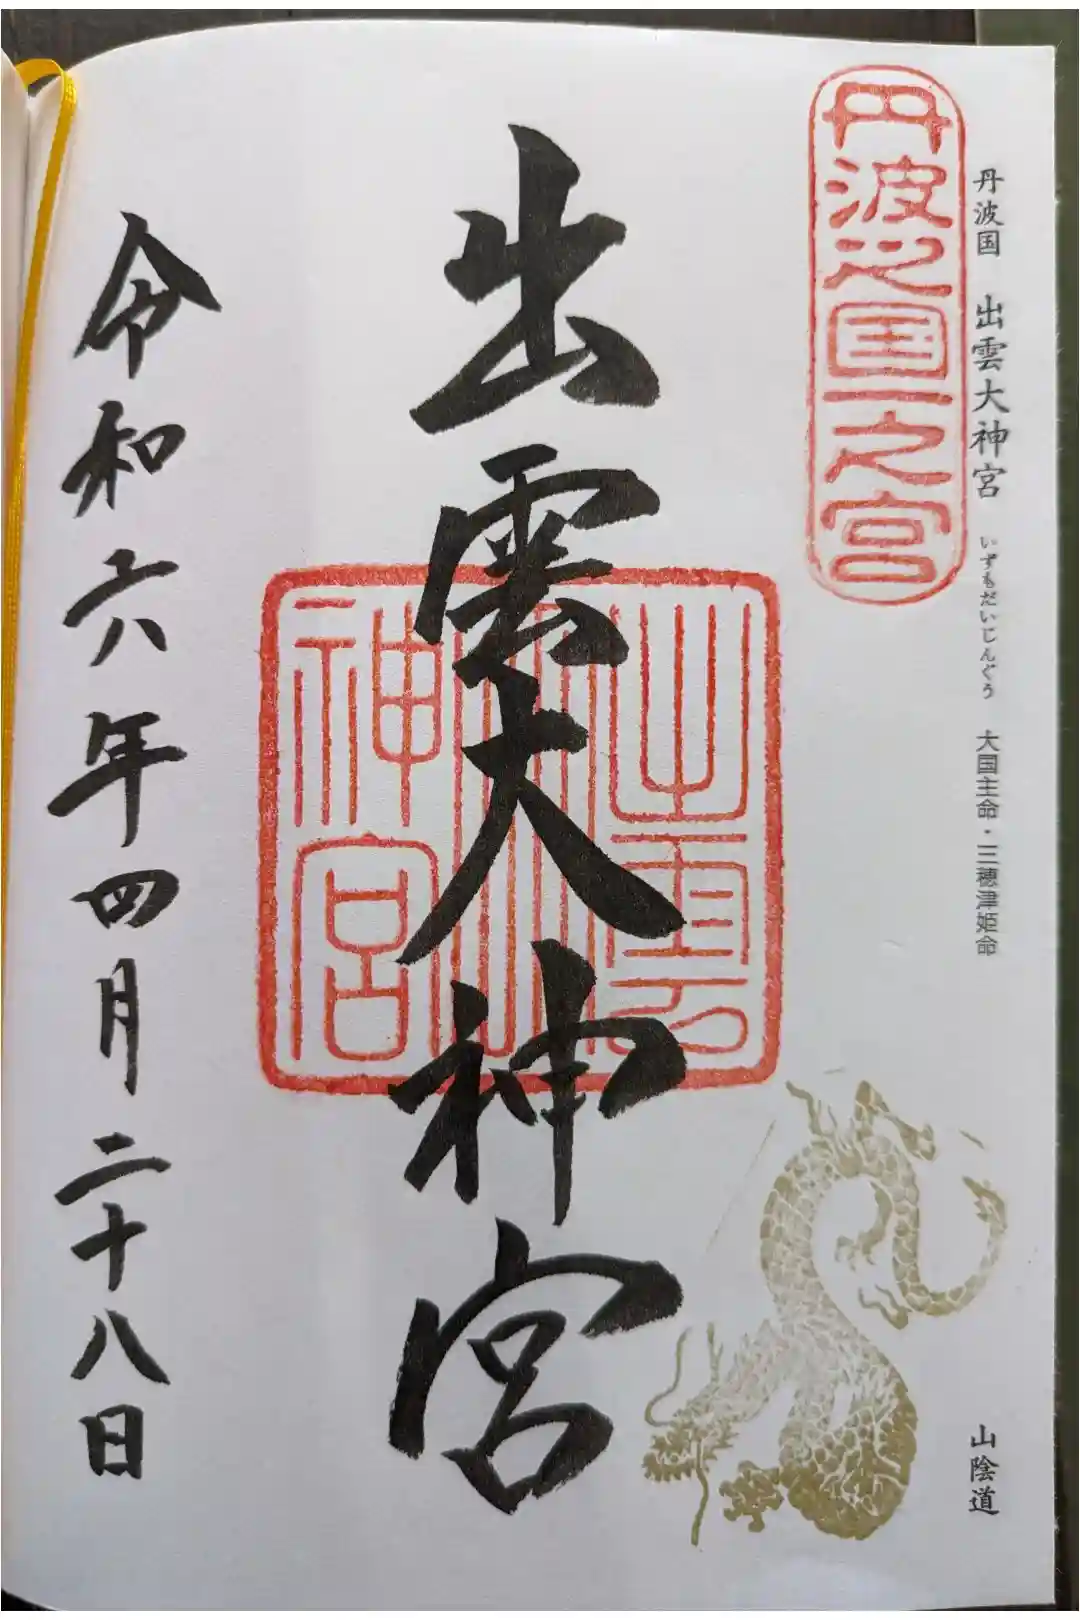 丹波国　出雲大神宮　いずもだいじんぐう　大国主命・三穂津姫命
山陰道
丹波之国一之宮
出雲大神宮
出雲
大
神宮
令和六年四月二十八日